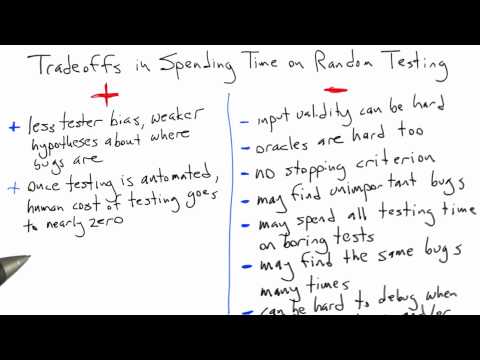 Tradeoffs in Spending Time on Random Testing
+
-
+ less tester bias, weaker
hypotheses about where
bugs are
+ Once testing is automated,
human cost of testing goes
to nearly zero
- input validity can be hard
- oracles are hard too
- no stopping criterion
- may find unimportant bugs
- may spend all testing time
on boring tests
- may find the same bugs
many times
- can be hard to debug when